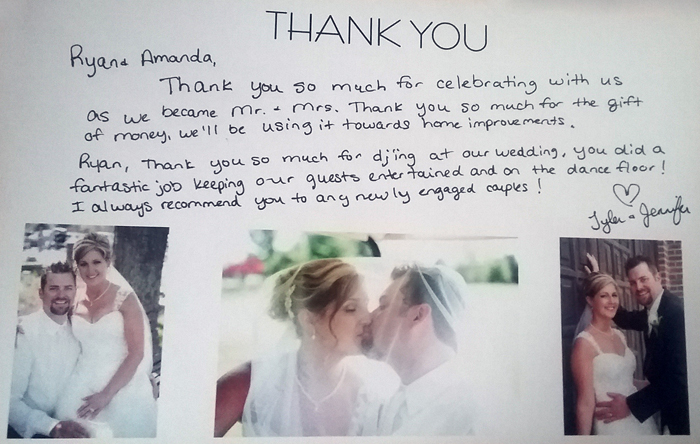 THANK YOU
Ryan & Amanda,
Thank you so much for celebrating with us
as we became Mr. & Mrs. Thank you so much for the gift
of money, we'll be using it towards home improvements.
Ryan, Thank you so much for dj'ing at our wedding, you did a
fantastic job keeping our guests entertained and on the dance floor!
I always recommend you to any newly engaged couples!
Tyler & Jennifer